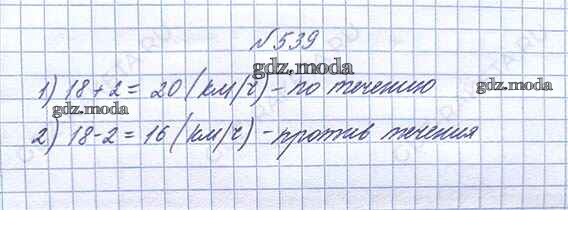 №539
gdz.moda
1) 18+2= 20 (км/ч) - по течению
gdz.moda
gdz.moda
2) 18-2 = 16 (км/ч) - против течения